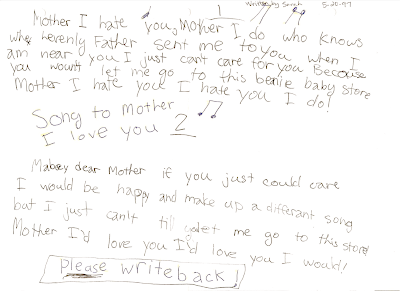 1 Written by Sarah 5-20-97
Mother I hate you, Mother I do who knows
why hevenly Father sent me to you when I
am near you I just cant care for you Because
you wount let me go to this benie baby store
Mother I hate you I hate you I do!
Song to Mother
I love you 2
Mabey dear Mother if you just could care
I would be happy and make up a differant song
but I just can't till let me go to this store
Mother I'd love you I'd love you I would!
please write back!